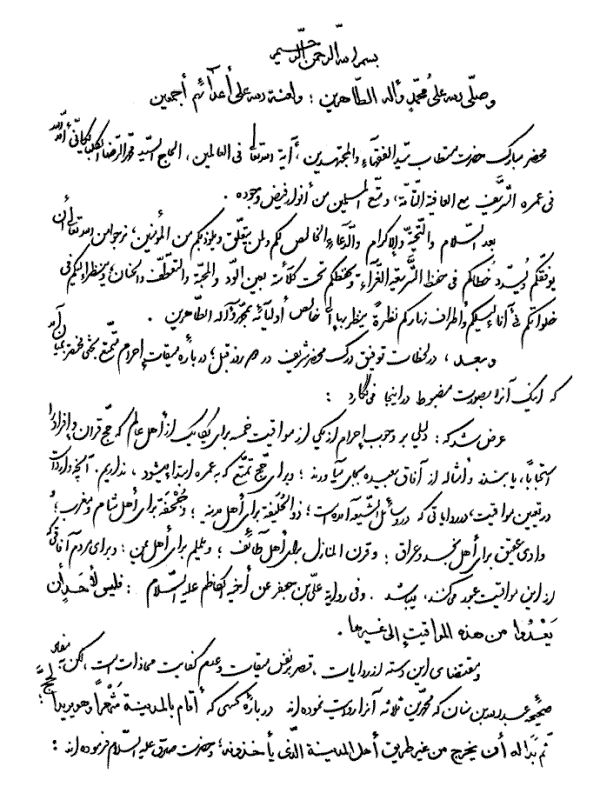 بسم الله الرحمن الرحیم
وصلّی الله علی محمّد وآله الطّاهرین ؛ ولعنة الله علی أعدائهم أجمعین
محضر مبارک حضرت مستطاب سیّد الفقهاء والمجتهدین ، آیة الله تعالی فی العالمین ، الحاج السیّد محمّد الرّضا الگلپایگانی أمدّ الله
فی عمره الشّریف مع العافیة التّامّة ، ومتّع المسلمین من أنوار فیض وجوده .
بعد السّلام والتّحیّة والإکرام والدّعاء الخالص لکم ولمن یتعلّق ویلوذ بکم من المؤمنین ، نرجو من الله تعالی أن
یوفّقکم ویسدّد خطاکم فی حفظ الشّریعة الغرّاء ویحفظکم تحت کلاءته بعین الودّ والمحبّة والتعطّف والحنان ؛ وینظر إلیکم فی
خلواتکم فی آناء لیلکم وأطراف نهارکم نظرةً ینظر بها إلی خالص أولیائه بمحمّد وآله الطّاهرین .
وبعد ، در لحظات توفیق درک محضر شریف در چند روز قبل ؛ درباره میقات إحرام تمتّع بحثی مختصر بمیان آمد
که اینک آنرا بصورت مضبوط در اینجا می‌نگارد :
عرض شد که : دلیلی بر وجوب إحرام از یکی از مواقیت خمسه برای یکایک از أهل عالم که حجّ قران وإفراد را
استحبابًا ، یا بنذر وأمثاله از آفاق بعیده بجای میآورند ؛ وبرای حجّ تمتّع که به عمره ابتدا میشود ، نداریم . آنچه وارد است
در تعیین مواقیت ، در روایاتی که در وسائل الشّیعه آمده است ؛ ذوالحُلَیفة برای أهل مدینه ؛ وجُحْفَة برای أهل شام ومغرب ؛ و
وادی عقیق برای أهل نجد وعراق ؛ وقرن المنازل برای أهل طآئف ؛ ویلملم برای أهل یمن ؛ وبرای مردم آفاقی که
از این مواقیت عبور میکنند ، میباشد . وفی روایة علیّ بن جعفر عن أخیه الکاظم علیه السّلام : فلیس لأحدٍ أن
یَعْدُوا من هذه المواقیت إلی غیرها .
ومقتضای این دسته از روایات ، قصر بر نفس میقات وعدم کفایت محاذات است ، لکن بمفاد
صحیحه عبدالله بن سنان که محمّدین ثلاثه آنرا روایت نموده‌اند درباره کسی که أقام بالمدینة شهراً وهو یرید الحجّ ؛
ثمّ بدا له أن یخرج من غیر طریق أهل المدینة الّذی یأخذونه ؛ وحضرت صادق علیه السّلام فرموده‌اند :